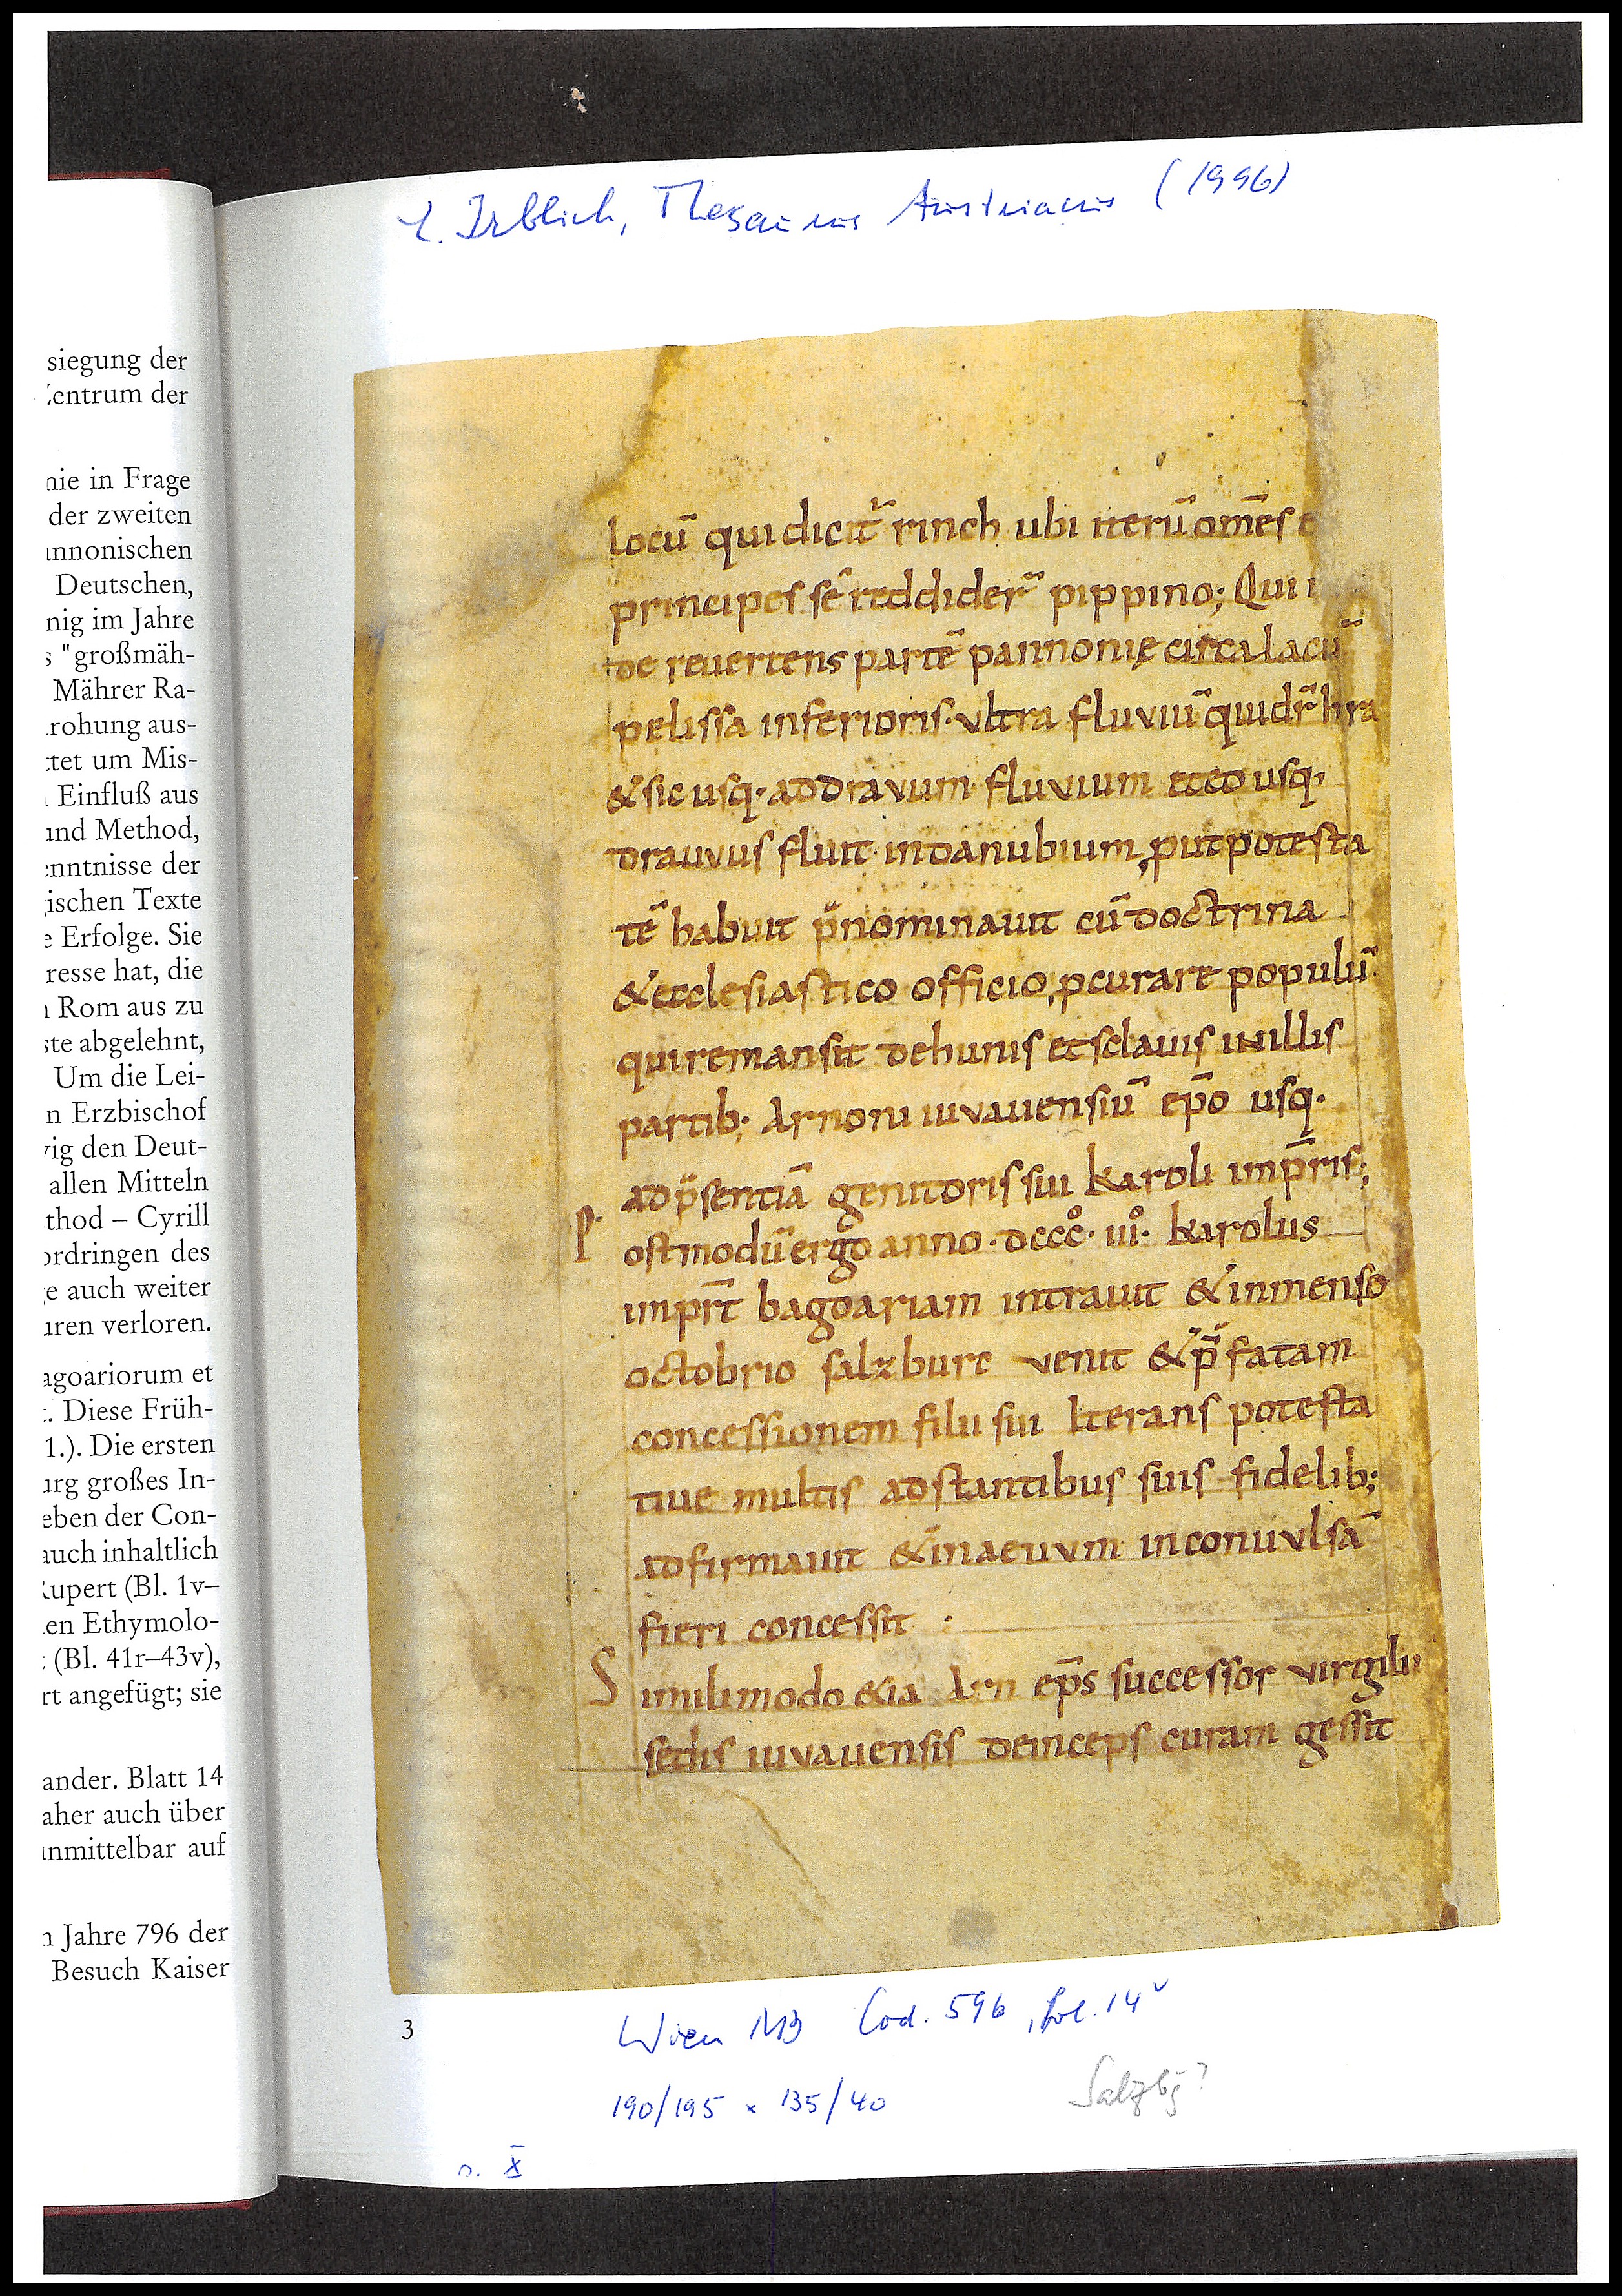 siegung der
entrum der
nie in Frage
der zweiten
annonischen
Deutschen,
nig im Jahre
s "großmäh-
Mährer Ra-
rohung aus-
tet um Mis-
Einfluß aus
und Method,
enntnisse der
ischen Texte
e Erfolge. Sie
resse hat, die
n Rom aus zu
ste abgelehnt,
Um die Lei-
n Erzbischof
vig den Deut-
allen Mitteln
thod – Cyrill
ordringen des
e auch weiter
uren verloren.
agoariorum et
. Diese Früh-
1.). Die ersten
urg großes In-
eben der Con-
auch inhaltlich
Rupert (Bl. 1v–
en Ethymolo-
(Bl. 41r–43v),
rt angefügt; sie
ander. Blatt 14
aher auch über
nmittelbar auf
n Jahre 796 der
Besuch Kaiser
E. Irblich, Thesaurus Austriacus (1996)
locū qui dicit̄ rinch ubi iterū om̄es
principes sē reddider̄ pippino; Qui i
de reuertens partē pannonię circa lacū
pelissa inferioris· vltra fluviū qui dr̄ hra
& sic usq· ad dravum fluvium et eo usq·
drauvus fluit in danubium, put potesta
tē habuit p̄nominauit cū doctrina
& ecclesiastico officio pcurare populū
qui remansit de hunis et sclauis in illis
partib; Arnoni iuvauensiū ep̄o usq·
ad p̄sentiā genitoris sui karoli imp̄ris;
P ostmodū ergo anno· dccc̊· iii̊· karolus
imp̄rt bagoariam intrauit & in menso
octobrio salzburc venit & p̄fatam
concessionem filii sui iterans potesta
tiue multis adstantibus suis fidelib;
adfirmauit & in aeuvm inconuvlsā
fieri concessit :
S imili modo &ia Arn ep̄s successor virgilii
sedis iuvauensis deinceps curam gessit
3
Wien NB Cod. 596, fol. 14v
190/195 × 135/40
Salzbg?
s. X̄